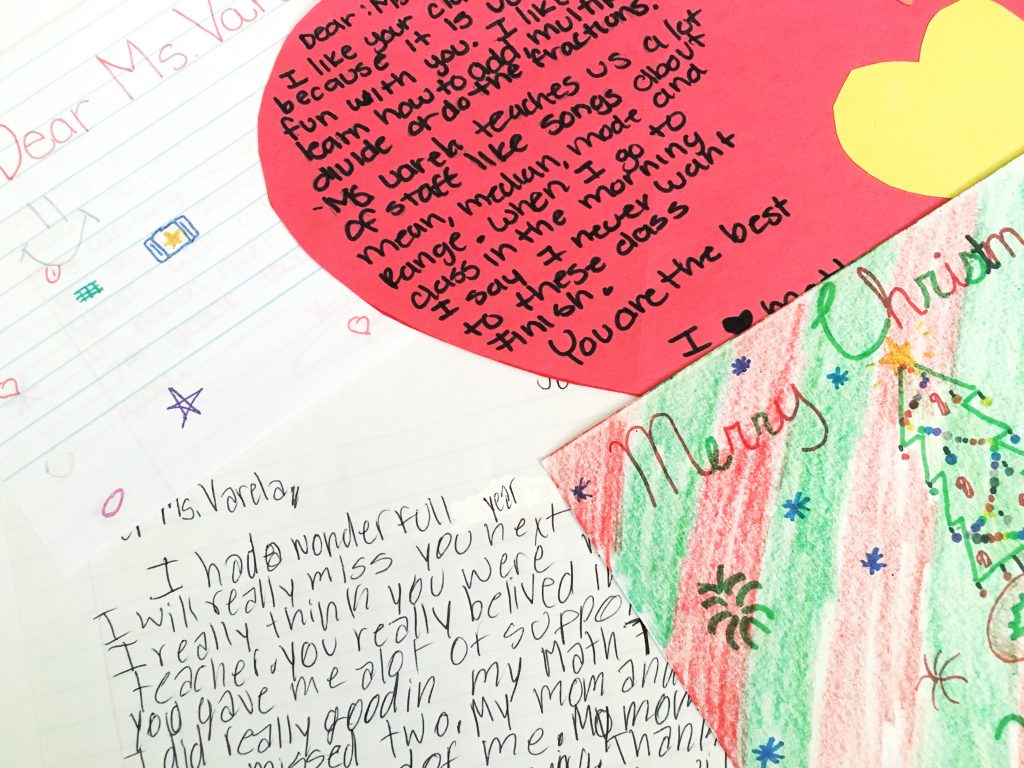 Dear Ms. Vare
Dear : Ms
I like your cla
because it is
fun with you. I like
learn how to add multip
divide or do the fractions.
-Ms varela teaches us a lot
of staff like songs about
mean, median, mode and
Range. when I go to
class in the morning
I say I never want
to these class
finish.
You are the best
I
Merry Christm
Ms. Varela,
I had a wonderfull year
I will really miss you next
I really think you were
teacher. you really belived in
you gave me alot of suppo
I did really good in my math
missed two. My mom and
of me. My mom